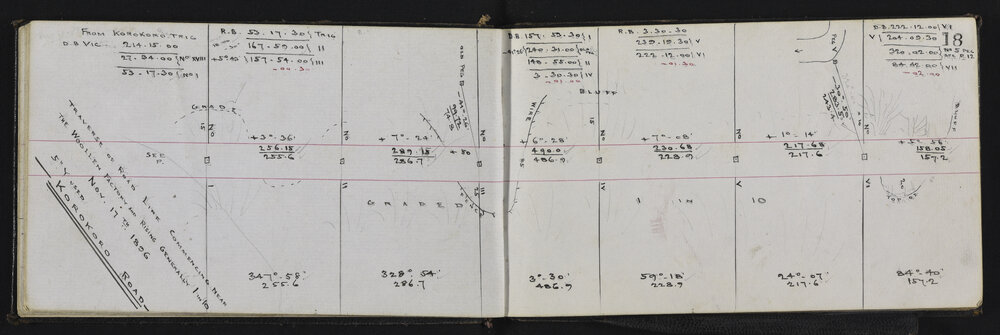 FROM KOROKORO TRIG
D.B VIC 214.15.00
27.34.00 NO XVIII
53.17.30 NO I
R.B. 53.17.30 TRIG
167-59.00 II
157-54.00 III
D.B 157.53.30 I
240.31.00
148.55.00 II
3.30.30 IV
-01.00
R.B. 3.30.30
239.19.30 V
222.12.00 VI
-01.30
D.B. 222.12.00 VI
V 204.09.30
320.02.00
84.42.00 VII
-02.00
18
OLD PEG B
PEG V
BLUFF
BLUFF
WIRE
GRADE
SEE
P.
NO
NO
NO
NO
NO
+3°-36'
256.15
255.6
+7°-24'
289.15
286.7
+50
+6°-28'
490.0
486.9
+7°-08'
230.68
228.9
+1°-14'
217.68
217.6
+5°-56'
158.05
157.2
II
III
IV
V
VI
GRADED 1 IN 10
TRAVERSE OF ROAD LINE COMMENCING NEAR
THE WOOLLEN FACTORY AND RISING GENERALLY 1 IN 10
SURVEYED NOV. 17TH 1896
KOROKORO ROAD
347°-58'
255.6
328°-54'
286.7
3°-30'
486.9
59°-18'
228.9
24°-07'
217.6
84°-40'
157.2